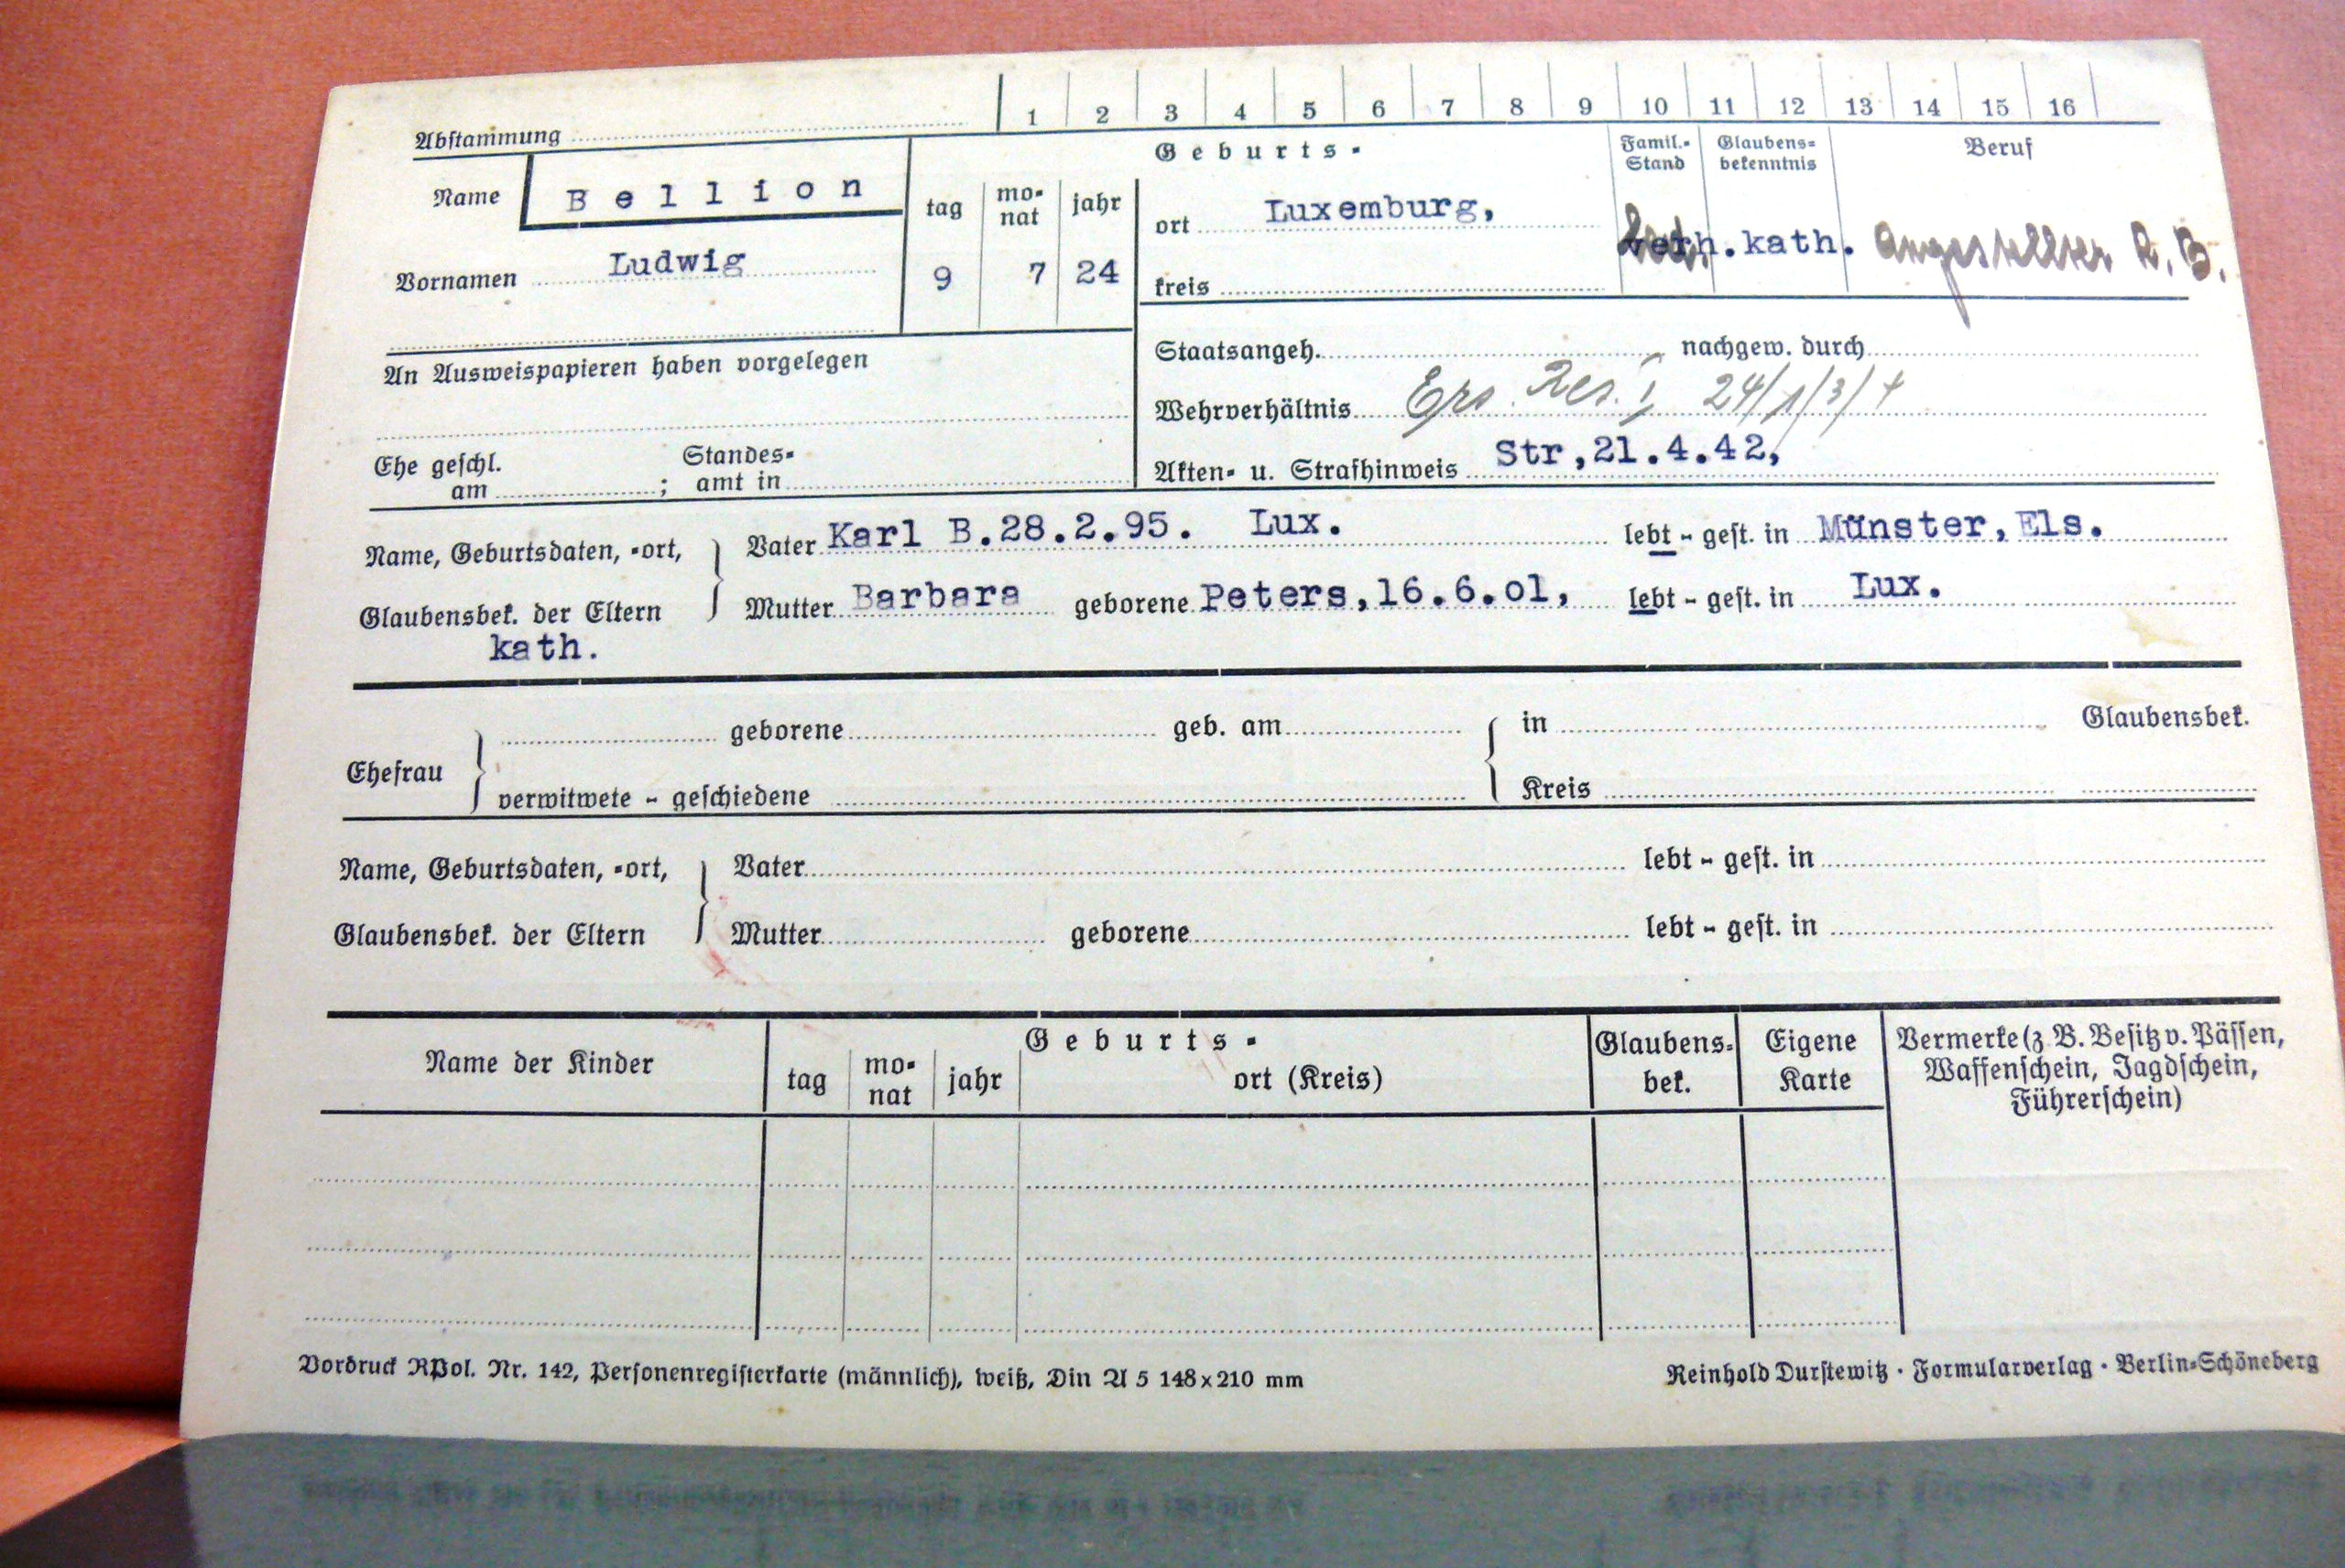 1 2 3 4 5 6 7 8 9 10 11 12 13 14 15 16
Abstammung
Name Bellion
Vornamen Ludwig
tag monat jahr
9 7 24
Geburts-
ort Luxemburg,
kreis
Famil.-Stand
Glaubens-bekenntnis
Beruf
verh. kath. Angestellter R. B.
An Ausweispapieren haben vorgelegen
Ehe geschl. am ; Standesamt in
Staatsangeh. nachgew. durch
Wehrverhältnis Ers. Res. I, 24/1/3/
Akten- u. Strafhinweis Str,21.4.42,
Name, Geburtsdaten, -ort, Vater Karl B.28.2.95. Lux. lebt - gest. in Münster, Els.
Glaubensbek. der Eltern Mutter Barbara geborene Peters,16.6.01, lebt - gest. in Lux.
kath.
geborene geb. am in Glaubensbek.
Ehefrau
verwitwete - geschiedene Kreis
Name, Geburtsdaten, -ort, Vater lebt - gest. in
Glaubensbek. der Eltern Mutter geborene lebt - gest. in
Name der Kinder
Geburts-
tag monat jahr ort (Kreis)
Glaubens-bek.
Eigene Karte
Vermerke (z B. Besitz v. Pässen,
Waffenschein, Jagdschein,
Führerschein)
Vordruck RPol. Nr. 142, Personenregisterkarte (männlich), weiß, Din A 5 148x210 mm
Reinhold Durstewitz · Formularverlag · Berlin-Schöneberg